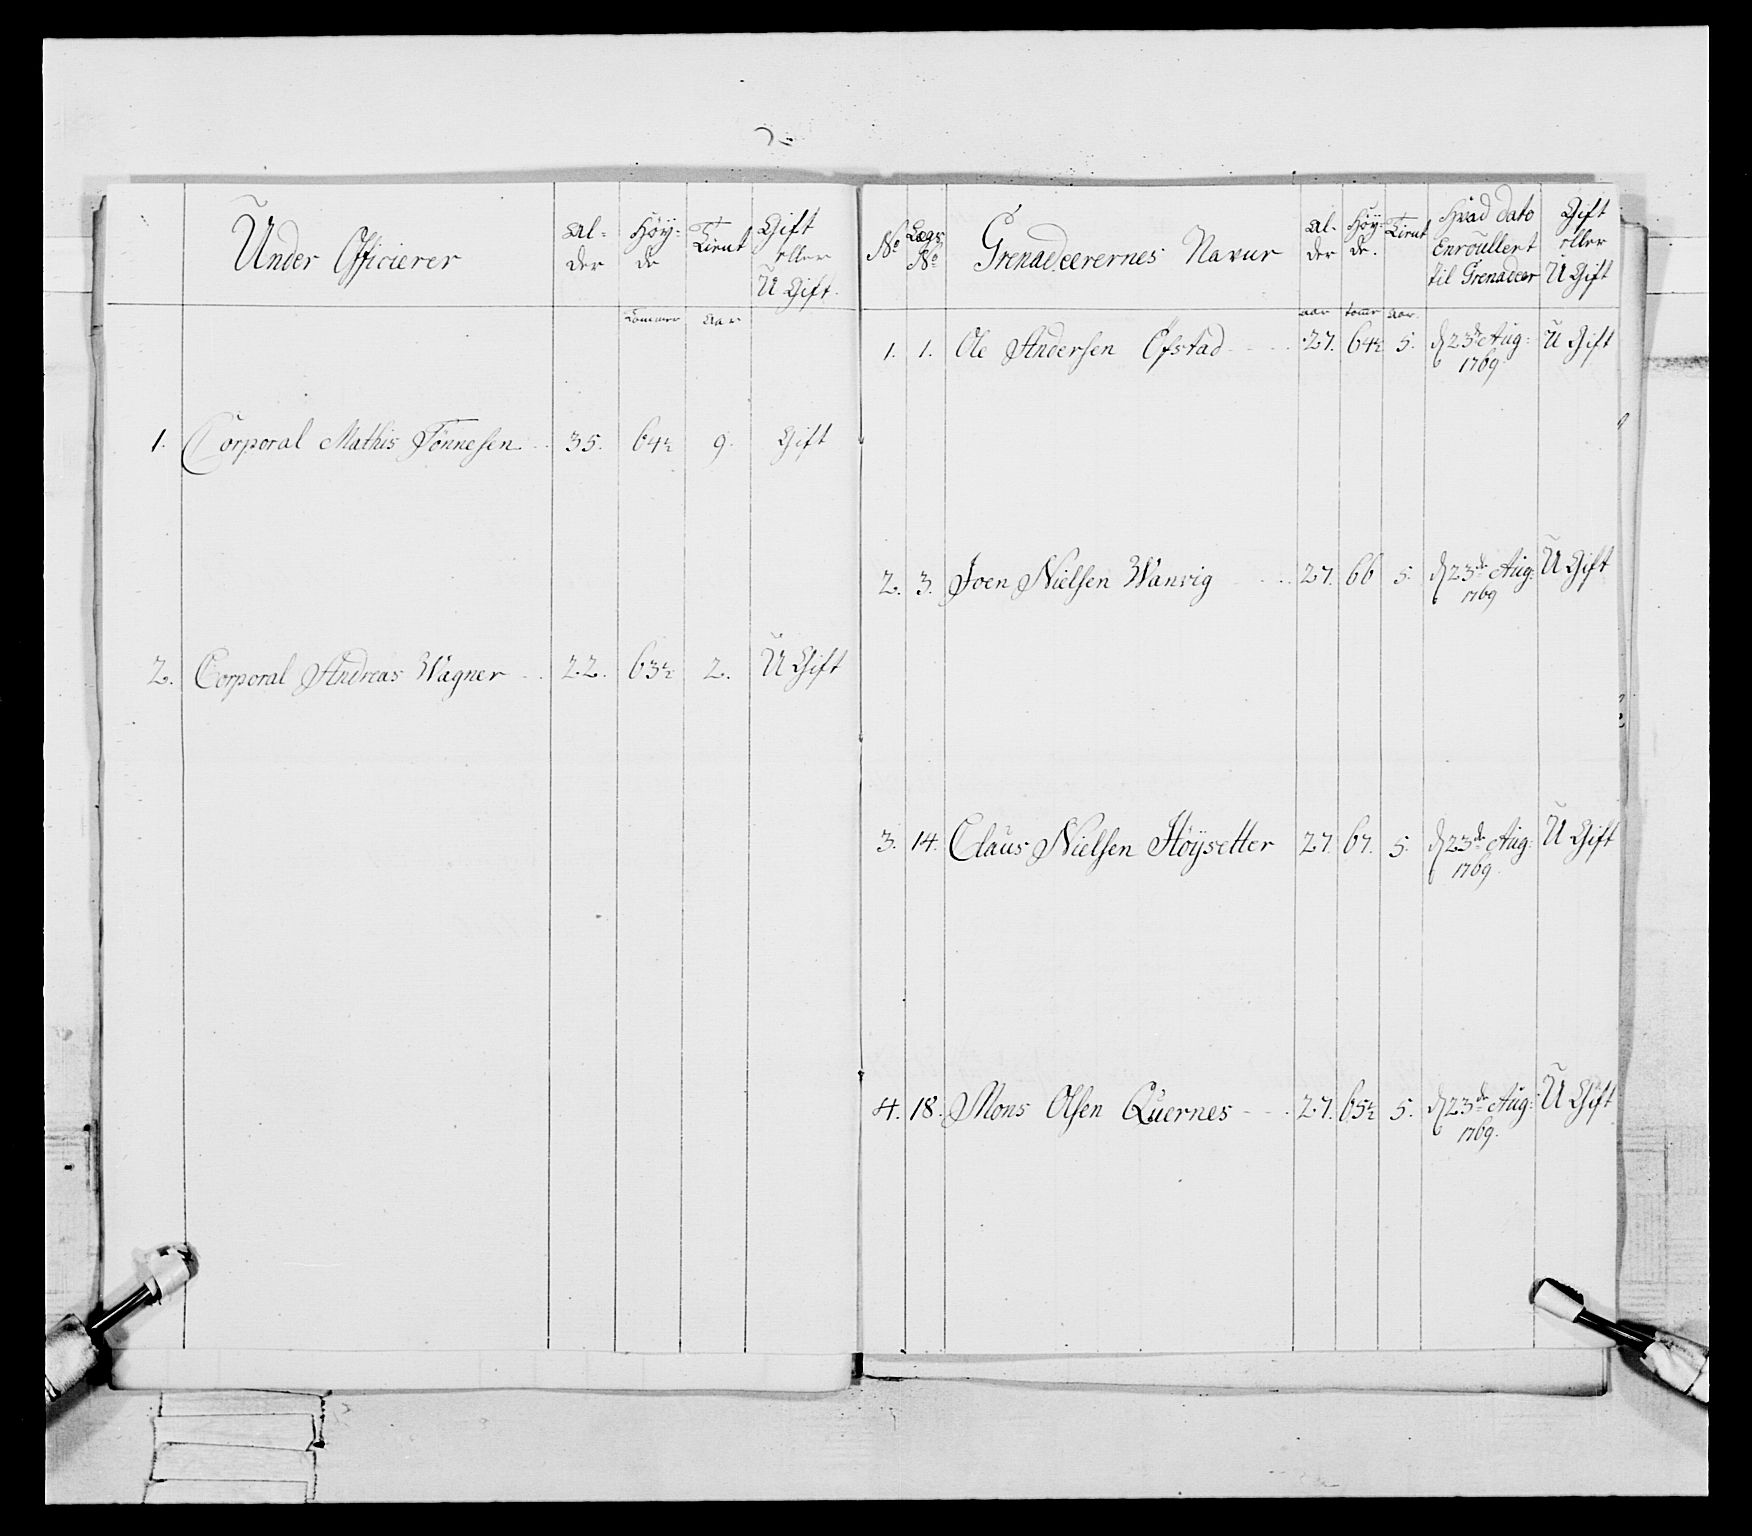 Under Officierer | Al-der | Höy-de | Tient | Gift eller U Gift
Tommer | Aar
1. Corporal Mathis Tönnesen | 35. | 64½ | 9. | Gift
2. Corporal Andreas Wagner | 22. | 63½ | 2. | U Gift
No | Lægs No | Grenadeerernes Navne | Al-der | Höy-de. | Tient | Hvad dato Enroullert til Grenadeer | Gift eller U Gift
aar | tomr | Aar.
1. | 1. | Ole Andersen Öfstad | 27. | 64½ | 5. | d 23de Aug: 1769 | U Gift
2. | 3. | Joen Nielsen Wanvig | 27. | 66 | 5. | d 23de Aug: 1769 | U Gift
3. | 14. | Claus Nielsen Höysetter | 27. | 67. | 5. | d 23de Aug: 1769. | U Gift
4. | 18. | Mons Olsen Quernes | 27. | 65½ | 5. | d 23de Aug: 1769. | U Gift